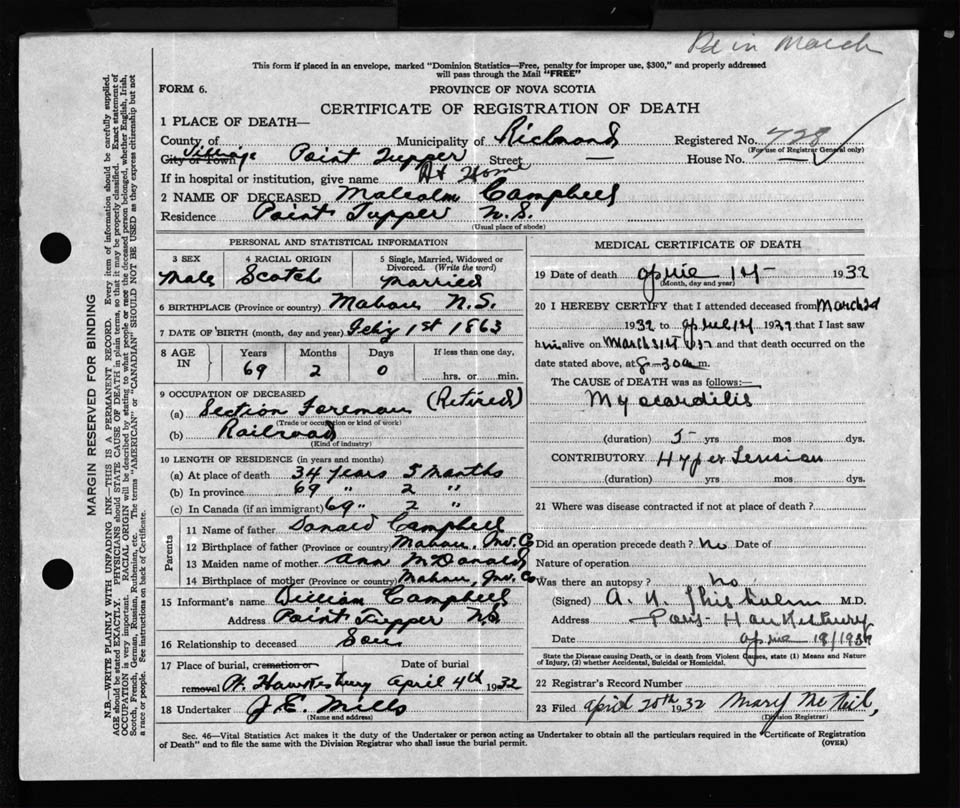 Rd in March
This form if placed in an envelope, marked "Dominion Statistics—Free, penalty for improper use, $300," and properly addressed
will pass through the Mail "FREE"
FORM 6.
PROVINCE OF NOVA SCOTIA
CERTIFICATE OF REGISTRATION OF DEATH
1 PLACE OF DEATH—
County of Municipality of Richmond Registered No. 728
(For use of Registrar General only)
Village
City or Town Point Tupper Street — House No. —
If in hospital or institution, give name At Home
2 NAME OF DECEASED Malcolm Campbell
Residence Point Tupper N.S.
(Usual place of abode)
PERSONAL AND STATISTICAL INFORMATION
3 SEX 4 RACIAL ORIGIN 5 Single, Married, Widowed or
Divorced. (Write the word)
Male Scotch Married
6 BIRTHPLACE (Province or country) Mabou N.S.
7 DATE OF BIRTH (month, day and year) 1st 1863
8 AGE IN Years Months Days If less than one day,
69 2 0 hrs. or min.
9 OCCUPATION OF DECEASED (Retired)
(a) Section Foreman
(Trade or occupation or kind of work)
(b) Railroad
(Kind of industry)
10 LENGTH OF RESIDENCE (in years and months)
(a) At place of death 34 years 5 months
(b) In province 69 " 2 "
(c) In Canada (if an immigrant) 69 " 2 "
Parents
11 Name of father Donald Campbell
12 Birthplace of father (Province or country) Mabou, Inv. Co
13 Maiden name of mother Ann McDonald
14 Birthplace of mother (Province or country) Mabou, Inv. Co
15 Informant's name William Campbell
Address Point Tupper N.S
16 Relationship to deceased Son
17 Place of burial, cremation or Date of burial
removal P. Hawkesbury April 4th 1932
18 Undertaker J. E. Mills
(Name and address)
MEDICAL CERTIFICATE OF DEATH
19 Date of death April 1st 1932
(Month, day and year)
20 I HEREBY CERTIFY that I attended deceased from March 2d
1932 to April 1st that I last saw
him alive on March 31st 1932 and that death occurred on the
date stated above, at 8-30 a m.
The CAUSE OF DEATH was as follows:—
Myocarditis
(duration) 5 yrs mos dys.
CONTRIBUTORY Hypertension
(duration) yrs mos dys.
21 Where was disease contracted if not at place of death?
Did an operation precede death? No Date of
Nature of operation
Was there an autopsy? No
(Signed) A. M.D.
Address Port Hawkesbury
Date April
State the Disease causing Death, or in death from Violent Causes, state (1) Means and Nature
of Injury, (2) whether Accidental, Suicidal or Homicidal.
22 Registrar's Record Number
23 Filed April 20th 1932 Mary McNeil,
(Division Registrar)
Sec. 46—Vital Statistics Act makes it the duty of the Undertaker or person acting as Undertaker to obtain all the particulars required in the "Certificate of Registration
of Death" and to file the same with the Division Registrar who shall issue the burial permit.
(OVER)
MARGIN RESERVED FOR BINDING
N.B.—WRITE PLAINLY WITH UNFADING INK—THIS IS A PERMANENT RECORD. Every item of information should be carefully supplied.
AGE should be stated EXACTLY. PHYSICIANS should STATE CAUSE OF DEATH in plain terms, so that it may be properly classified. Exact statement of
OCCUPATION is very important. RACIAL ORIGIN will be described by stating to what people or race the deceased person belonged, whether English, Irish,
Scotch, French, German, Russian, Ruthenian, etc. The terms "AMERICAN" or "CANADIAN" SHOULD NOT BE USED as they express citizenship but not
a race or people. See instructions on back of Certificate.